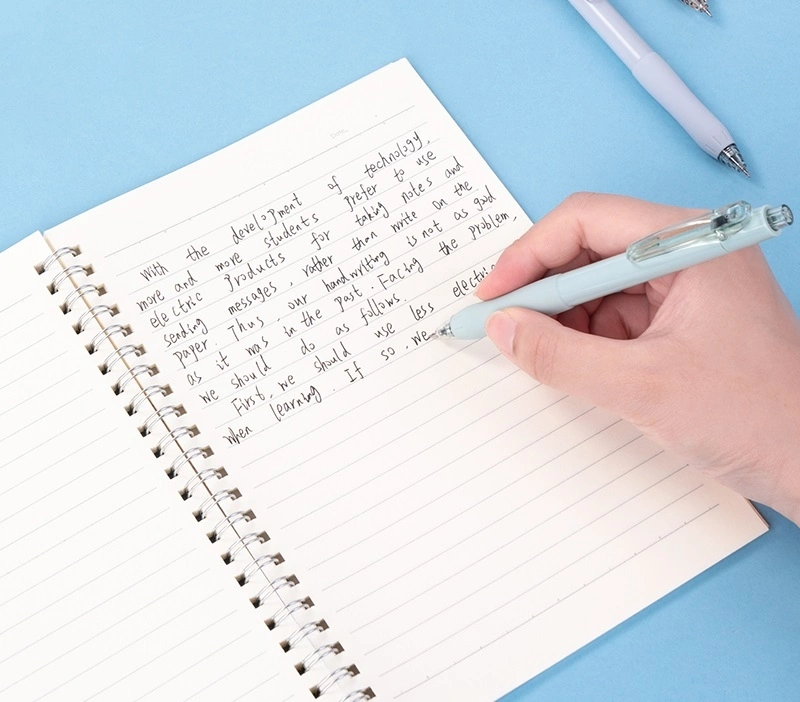 With the development of technology,
more and more students prefer to use
electric products for taking notes and
sending messages, rather than write on the
paper. Thus, our handwriting is not as good
as it was in the past. Facing the problem,
we should do as follows.
First, we should use less electric
when learning. If so, we